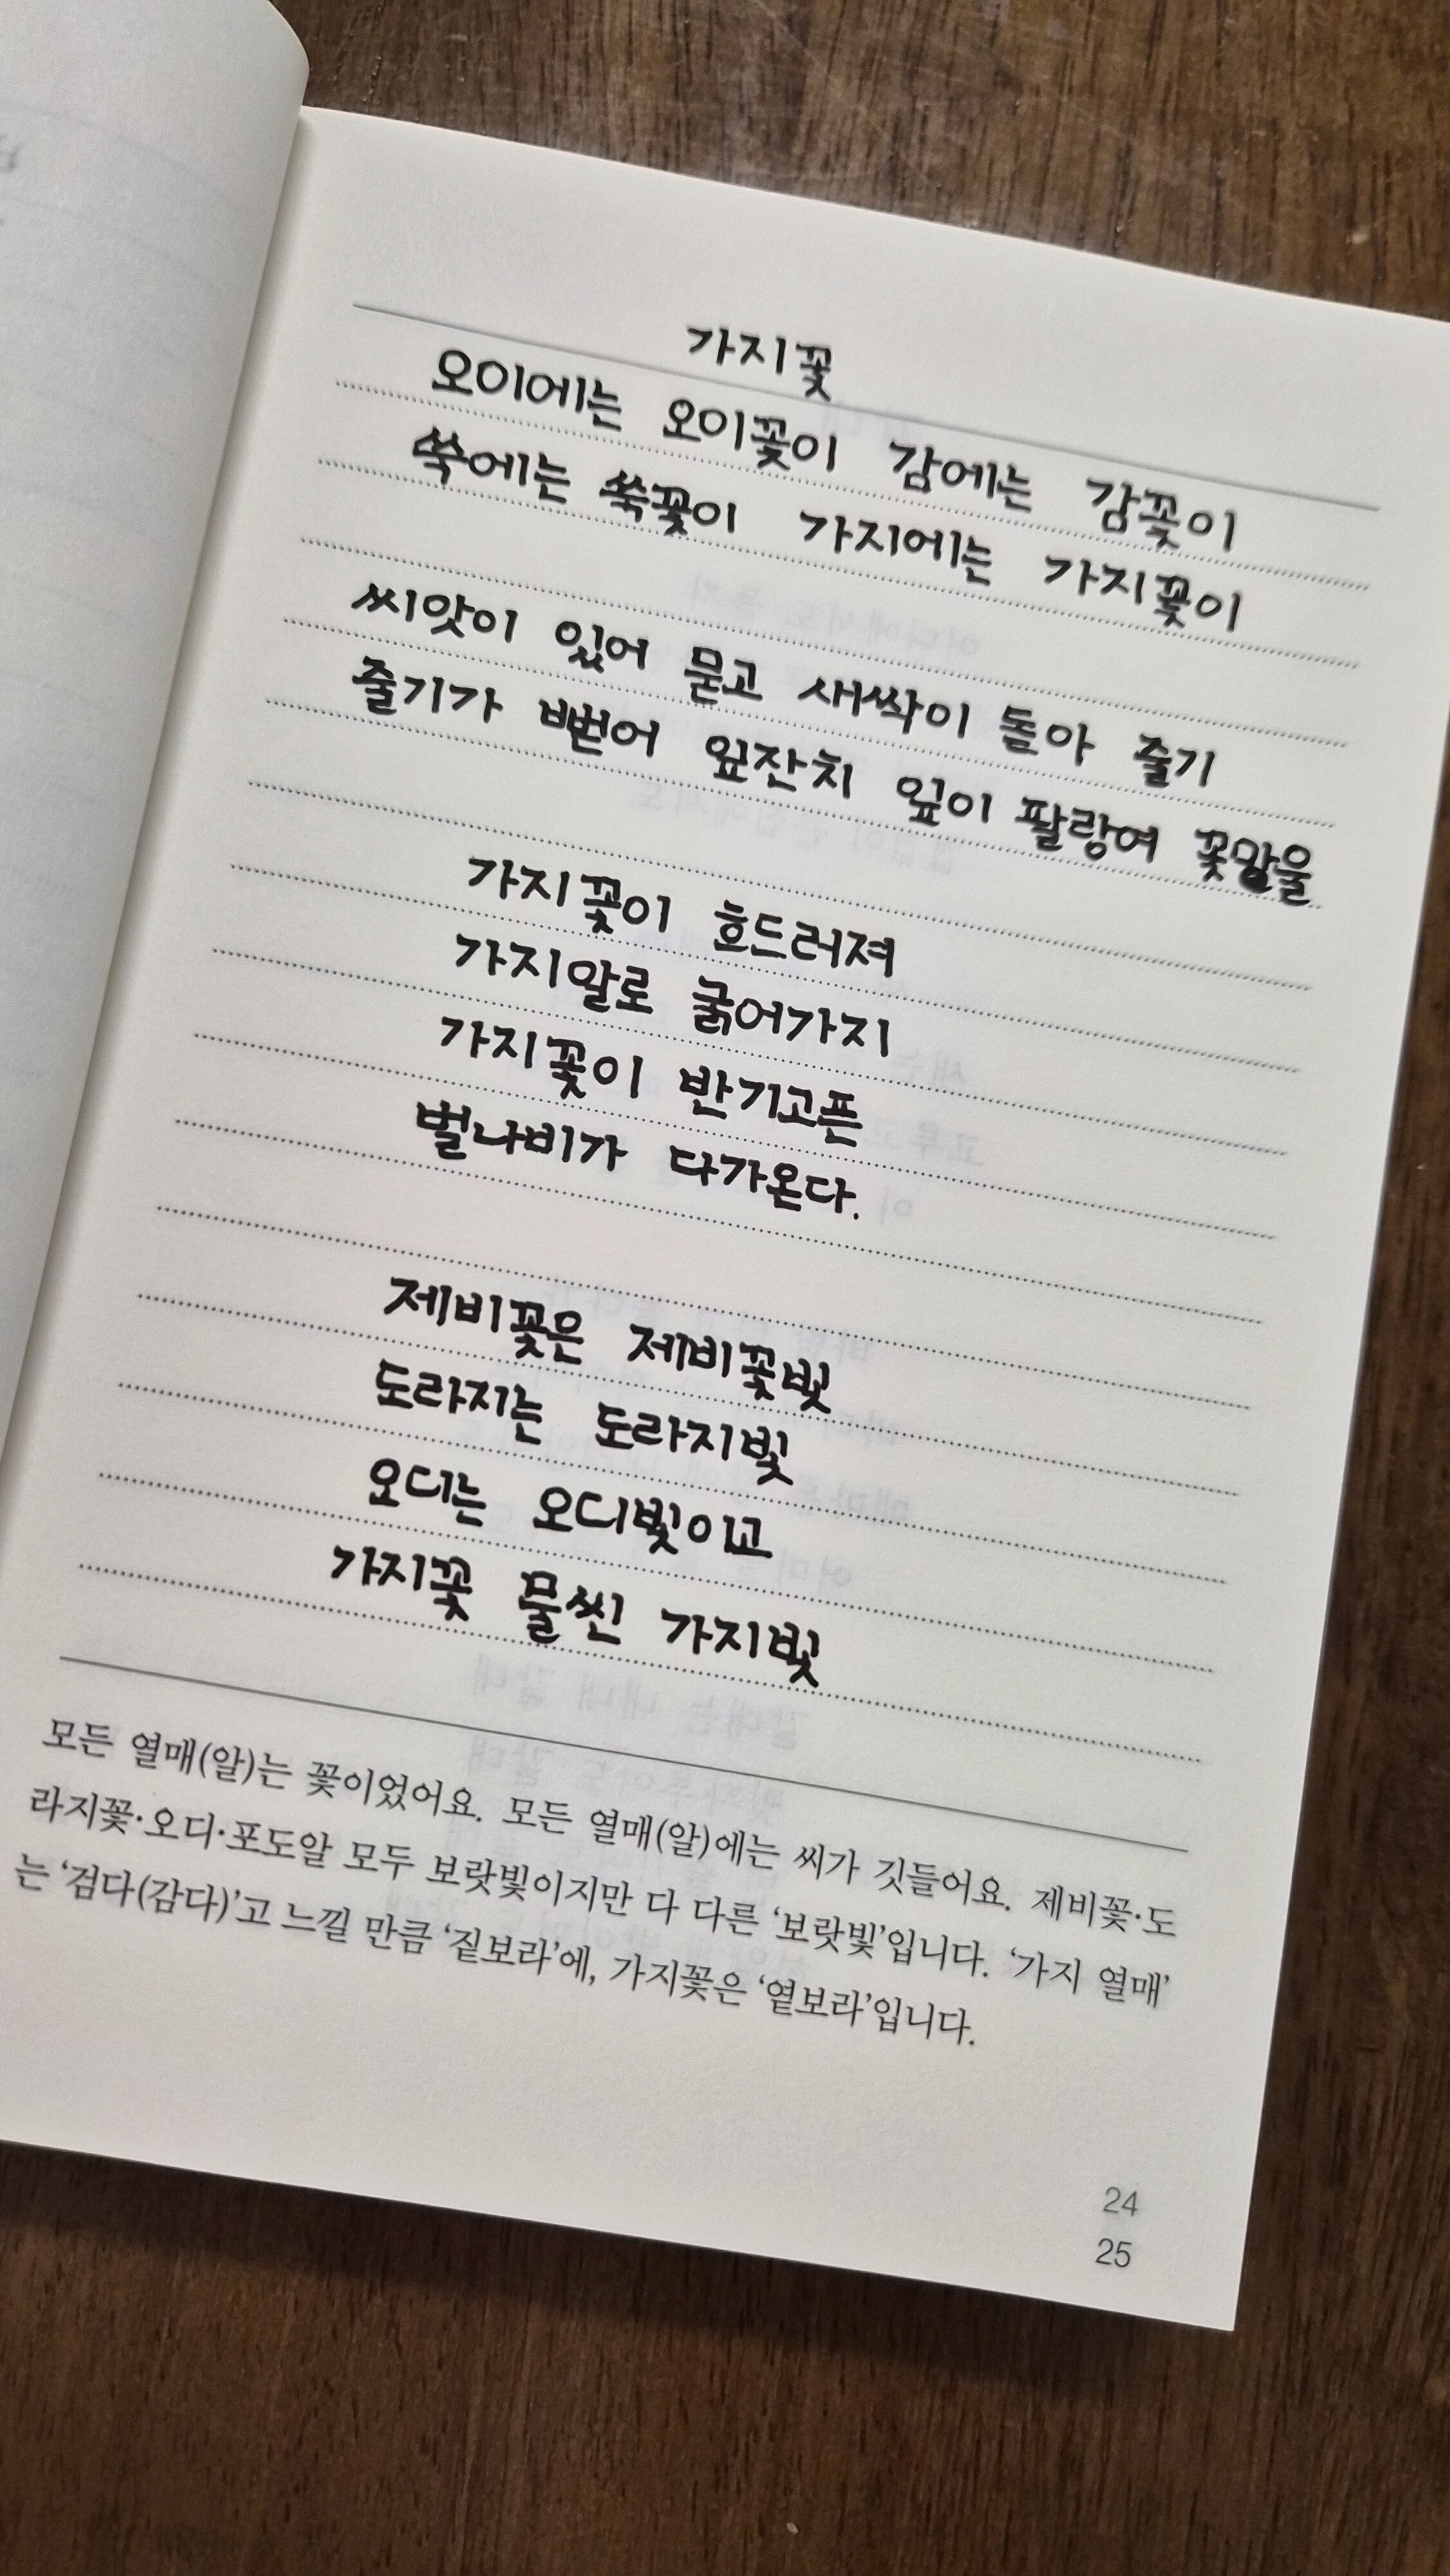 가지꽃
오이에는 오이꽃이 감에는 감꽃이
쑥에는 쑥꽃이 가지에는 가지꽃이
씨앗이 있어 묻고 새싹이 돌아 줄기
줄기가 뻗어 잎잔치 잎이 팔랑여 꽃망울
가지꽃이 흐드러져
가지알로 굵어가지
가지꽃이 반기고픈
벌나비가 다가온다.
제비꽃은 제비꽃빛
도라지는 도라지빛
오디는 오디빛이고
가지꽃 물씬 가지빛
모든 열매(알)는 꽃이었어요. 모든 열매(알)에는 씨가 깃들어요. 제비꽃·도
라지꽃·오디·포도알 모두 보랏빛이지만 다 다른 ‘보랏빛’입니다. ‘가지 열매’
는 ‘검다(감다)’고 느낄 만큼 ‘짙보라’에, 가지꽃은 ‘옅보라’입니다.
24
25